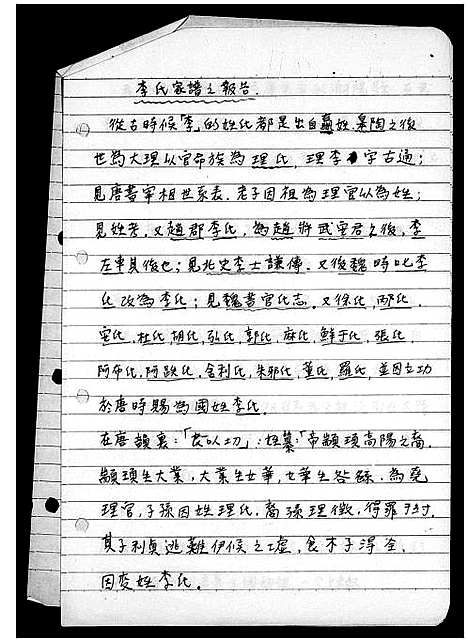 李氏家譜之報告.
從古時候李的姓氏都是出自嬴姓.皋陶之後
世為大理以官命族為理氏,理李字古通;
見唐書宰相世系表.老子因祖為理官以為姓;
見姓考.又趙郡李氏,為趙將武安君之後,李
左車其後也;見北史李士謙傳.又後魏時叱李
氏改為李氏;見魏書官氏志.又徐氏,邴氏.
安氏,杜氏,胡氏,弘氏,郭氏,麻氏,鮮于氏,張氏.
阿布氏,阿跌氏,舍利氏,朱邪氏,董氏,羅氏,並因立功
於唐時賜為國姓李氏.
在唐韻裏:「 以切」:姓纂:「帝顓頊高陽之裔.
顓頊生大業,大業生女華,女華生咎繇,為堯
理官,子孫因姓理氏,裔孫理徵,得罪于紂.
其子利貞逃難伊候之墟,食木子得全.
因変姓李氏.